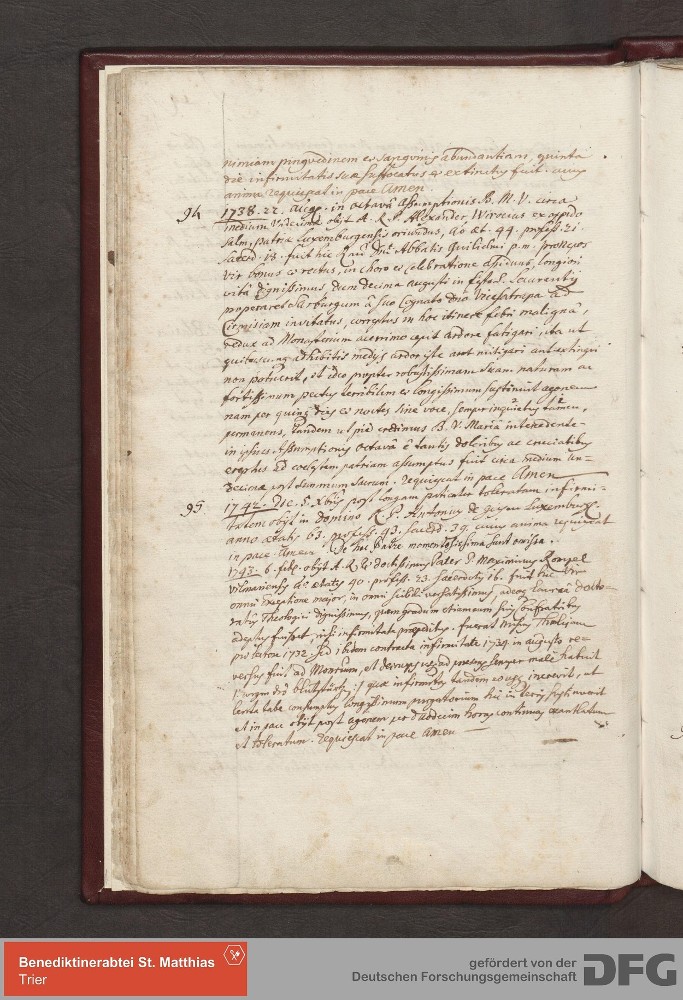 nimiam pinguedinem et sanguinis abundantiam, quinta
die infirmitatis suæ suffocatus et extinctus fuit. cuius
anima requiescat in pace Amen.
94 1738. 22. Aug. in octava Assumptionis B. M. V. circa
medium obijt A. R. P. Alexander ex oppido
Salm, patria Luxemburgensis oriundus, ao æt. 44. profess. 21.
sacerd. 13. fuit hic Dni Abbatis Guilielmi p.m.
vir bonus et rectus, in choro et celebratione assiduus, longiori
vitâ dignissimus, dum decima augusti in festo S. Laurentij
properaret Sarburgum â suo Cognato dno Vicesatrapa ad
invitatus, correptus in hoc itinere febri malignâ,
redux ad Monasterium acerrimo cepit ardore fatigari, ita ut
adhibitis medijs ardor iste aut mitigari aut extingui
non potuerit, et ideo propter robustissimam suam naturam ac
fortissimum pectus terribilem et longissimum sustinuit agonem
nam per quinq dies et noctes sine voce, semper inquietus tamen,
permanens, tandem ut piè credimus B. V. Mariâ intercedente
in ipsius Assumptionis octavâ è tantis doloribus ac cruciatibus
ereptus ad coelestem patriam assumptus fuit circa medium un=
decimæ post summum sacrum. requiescat in pace Amen
95 1742. die. 5. Xbris post longam patienter toleratam infirmi=
tatem obijt in domino R. P. Antonius de Luxemburg.
anno ætatis 63. profess. 43. sacerd. 39. cuius anima requiescat
in pace Amen. De hoc Patre momentosissima sunt omissa.
1743. 6. febr. obijt A. R. et doctissimus Pater P. Maximinus
ao ætatis 40. profess. 23. sacerdoty 16. fuit hic vir
omni exceptione major, in omni scibili versatissimus, adeoq laurea docto=
ratus Theologici dignissimus, quem gradum etiam cum suis Confratribus
adeptus fuisset, nisi infirmitate præpeditus. fuerat missus
1732. sed ibidem contracta infirmitate 1734 in augusto re=
versus fuit ad Monrium, et semper malè habuit
blutstürtz quæ infirmitas tandem invenit, ut
lenta tabe consumptus longissimum purgatorium hic in terris sustinuerit
et in pace obijt post agonem per duodecim horas continuas exantlatum
et toleratum. requiescat in pace Amen
Benediktinerabtei St. Matthias
Trier
gefördert von der
Deutschen Forschungsgemeinschaft
DFG